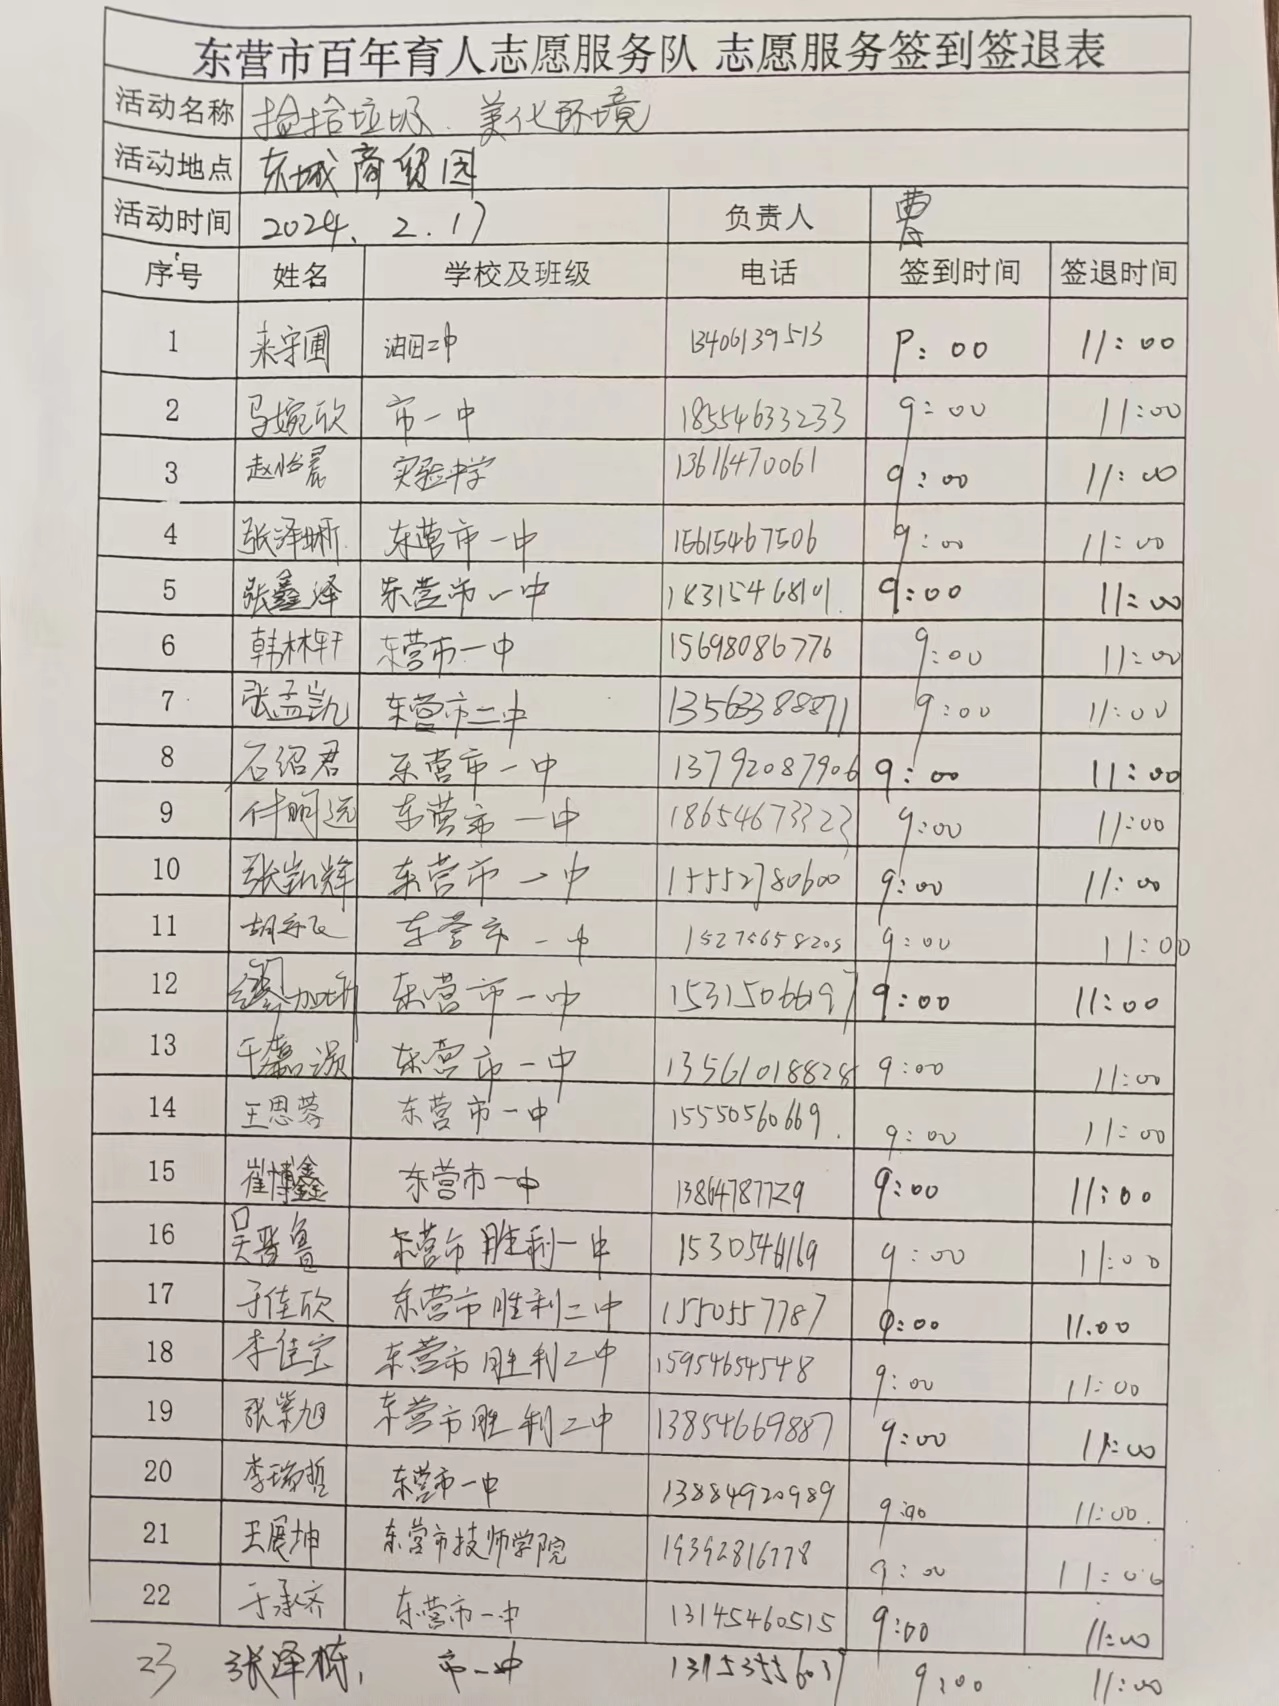 东营市百年育人志愿服务队 志愿服务签到签退表
活动名称 捡拾垃圾、美化环境
活动地点 东城商贸园
活动时间 2024.2.17 负责人 曹
序号 姓名 学校及班级 电话 签到时间 签退时间
1 来守圃 油田二中 13406139513 9:00 11:00
2 马婉欣 市一中 18554633233 9:00 11:00
3 赵怡晨 实验中学 13616470061 9:00 11:00
4 张泽晰 东营市一中 15615467506 9:00 11:00
5 张鑫泽 东营市一中 18315468101 9:00 11:00
6 韩林轩 东营市一中 15698086776 9:00 11:00
7 张孟凯 东营市二中 13563388871 9:00 11:00
8 石绍君 东营市一中 13792087906 9:00 11:00
9 付明远 东营市一中 18654673323 9:00 11:00
10 张凯辉 东营市一中 15552780600 9:00 11:00
11 胡 飞 东营市一中 15275658205 9:00 11:00
12 缪加 东营市一中 15315066197 9:00 11:00
13 于嘉灏 东营市一中 13561018828 9:00 11:00
14 王思蓉 东营市一中 15550560669 9:00 11:00
15 崔博鑫 东营市一中 13864787729 9:00 11:00
16 吴晋鲁 东营市胜利一中 1530546169 9:00 11:00
17 于佳欣 东营市胜利二中 1550557787 9:00 11:00
18 李佳宝 东营市胜利二中 15954654548 9:00 11:00
19 张紫旭 东营市胜利二中 13854669887 9:00 11:00
20 李瑞哲 东营市一中 13884920989 9:00 11:00
21 王展坤 东营市技师学院 19392816778 9:00 11:00
22 于承齐 东营市一中 13145460515 9:00 11:00
23 张泽栋 市一中 9:00 11:00